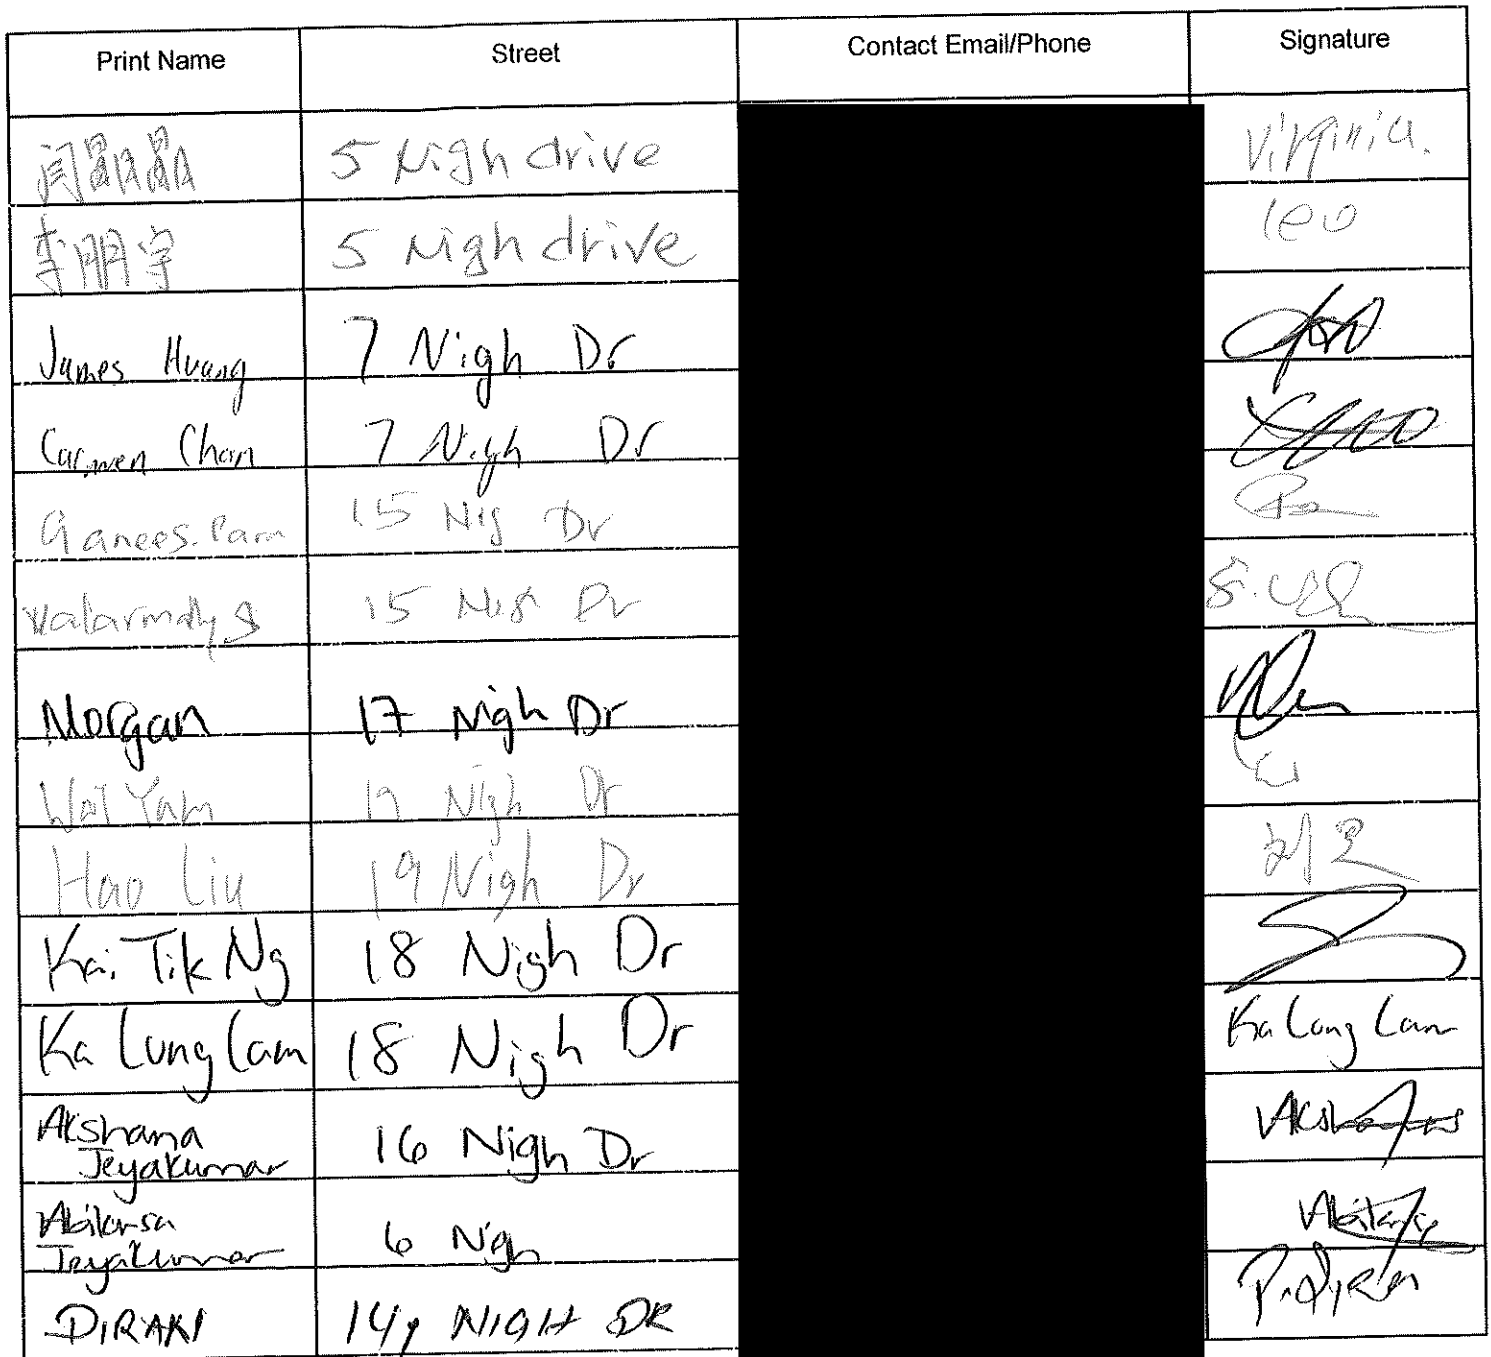 Print Name Street Contact Email/Phone Signature
闫晶晶 5 Nigh drive Virginia.
李朋宇 5 Nigh drive leo
James Huang 7 Nigh Dr
Carmen Chan 7 Nigh Dr
Ganees. Param 15 Nig Dr
Valarmathy S 15 Nig Dr
Morgan 17 Nigh Dr
Wai Yam Nigh Dr
Hao Liu 19 Nigh Dr
Kai Tik Ng 18 Nigh Dr
Ka Lung Lam 18 Nigh Dr Ka Lung Lam
Akshana
Jeyakumar 16 Nigh Dr
Jeyakumar 6 Nigh
DIRAKI 14, NIGH DR